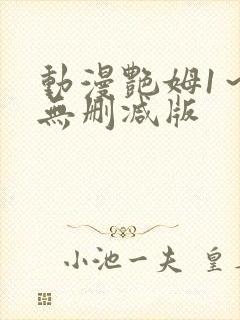 動漫艷姆1~
無刪減版
小池一夫 皇